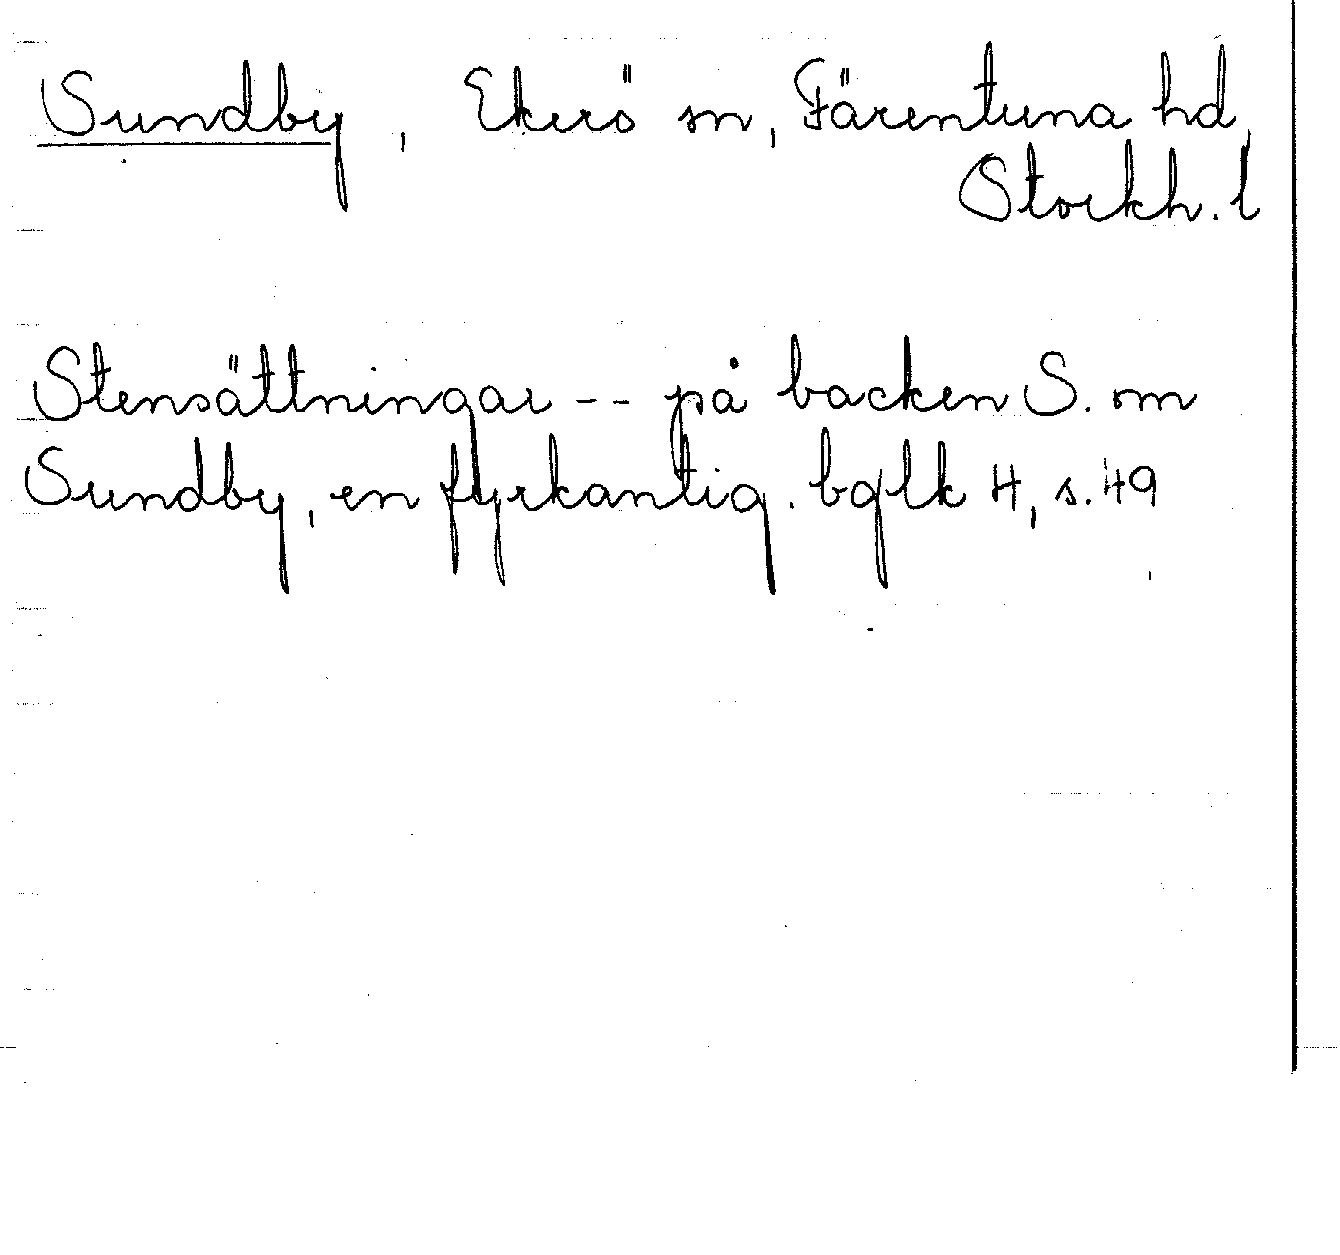 Sundby, Ekerö sn, Färentuna hd,
Stockh. l
Stensättningar -- på backen S. om
Sundby, en fyrkantig. bglk 4, s. 49